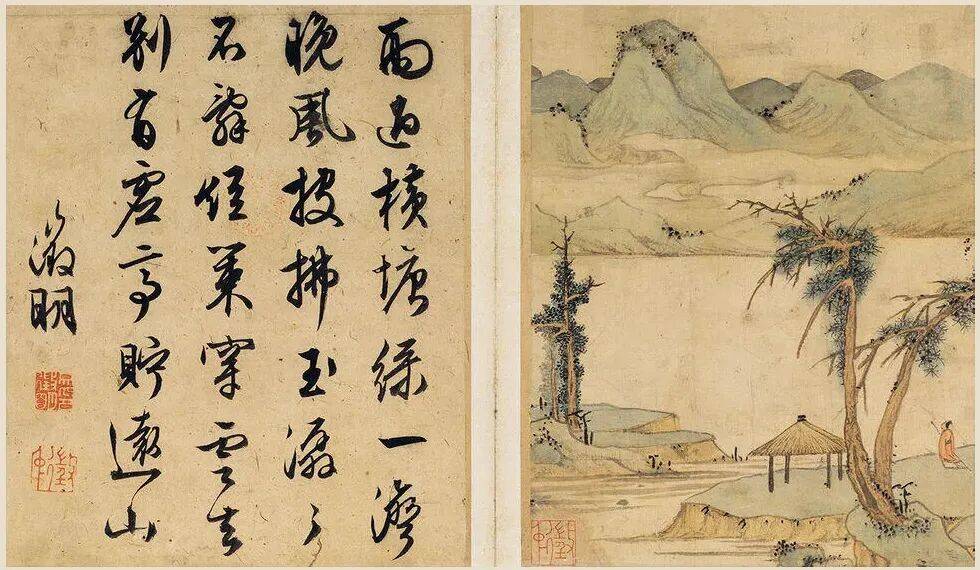 雨過橫塘綠一灣
晚風披拂玉潺〻
不辭短策穿雲去
別有虛亭貯遠山
徵明